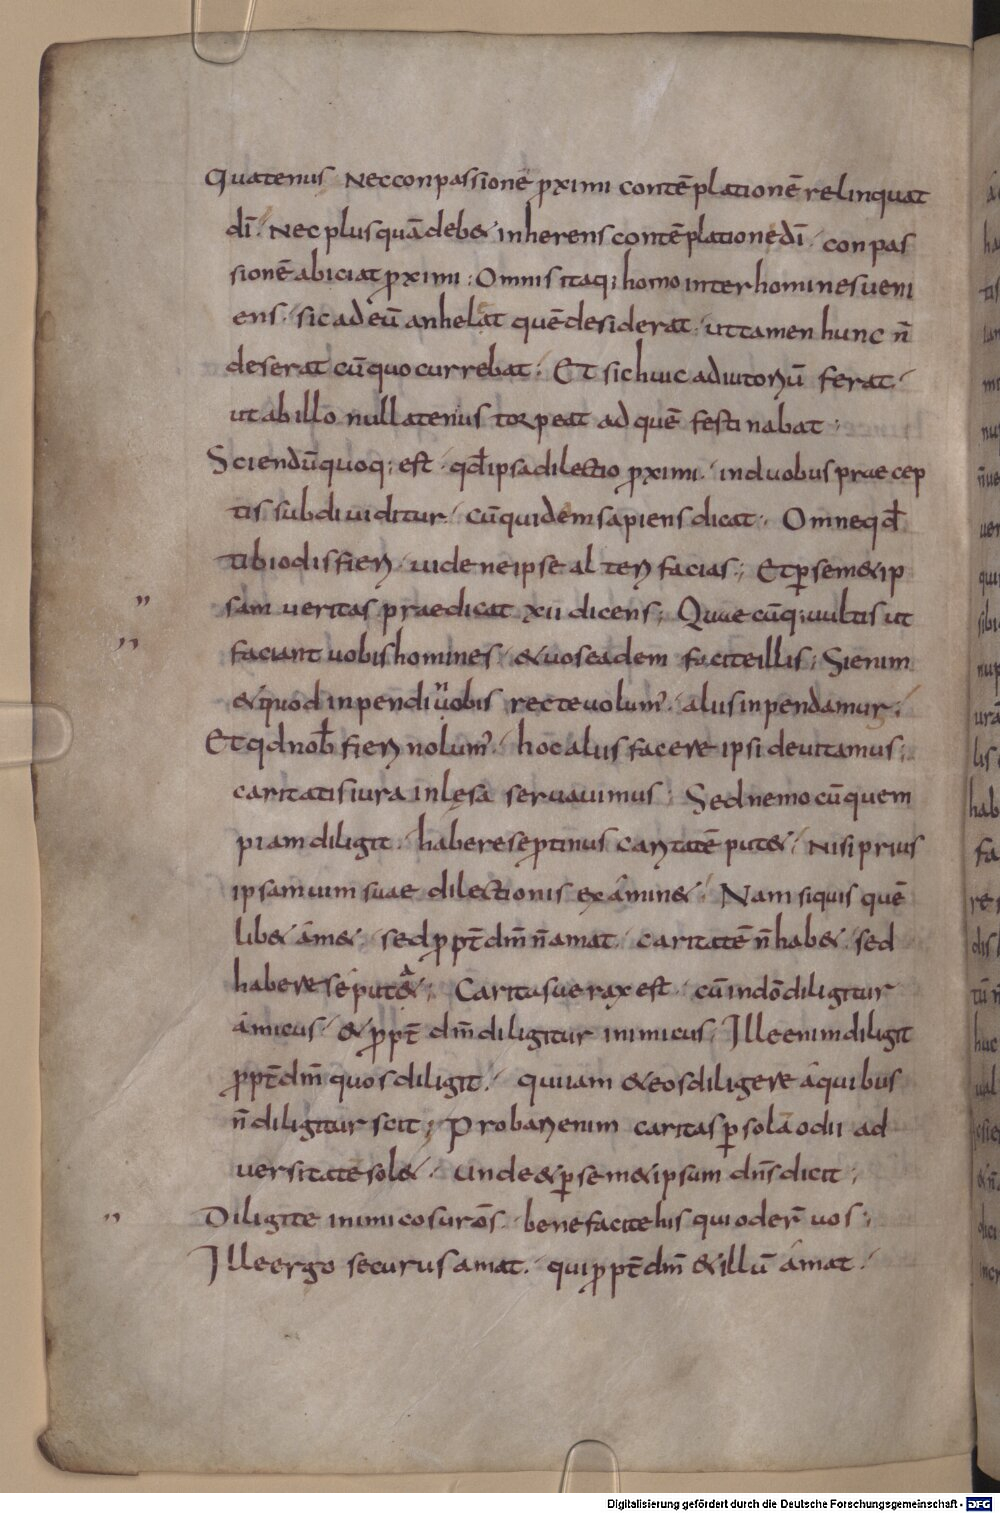 Quatenus nec conpassionē p̱ximi contēplationē relinquat
dī. Nec plusquā deb& inherens contēplatione dī conpas
sionē abiciat p̱ximi; Omnis itaq; homo inter homines ueni
ens. sic ad eū anhelat quē desiderat. ut tamen hunc n̄
deserat cū quo currebat. Et sic huic adiutoriū ferat.
ut ab illo nullatenus torpeat ad quē festinabat;
Sciendū quoq; est. qđ ipsa dilectio p̱ximi. in duobus praecep
tis subdiuiditur. cū quidem sapiens dicat. Omne qđ
tibi odis fieri. uide ne ipse alteri facias; Et p̱ sem&ip
sam ueritas praedicat xii dicens; Quaecūq; uultis ut
faciant uobis homines. & uos eadem facite illis; Si enim
& quod inpendi uobis recte uolum'. aliis inpendamur.
Et qđ nob̄ fieri nolum'. hoc aliis facere ipsi deuitamus;
caritatis iura inlęsa seruauimus; Sed nemo cū quem
piam diligit. habere se p̱tinus caritatē put&. Nisi prius
ipsam uim suae dilectionis exámin&. Nam si quis quē
lib& ám&. sed p̱pt̄ dm̄ n̄ amat. caritatē n̄ hab&. sed
habere se put&; Caritas uerax est. cū in dō diligitur
ámicus. & p̱pt̄ dm̄ diligitur inimicus; Ille enim diligit
p̱pt̄ dm̄ quos diligit. qui iam & eos diligere á quibus
n̄ diligitur scit; Probari enim caritas p̱ sola odii ad
uersitate sol&. Unde & p̱ sem&ipsam dn̄s dicit;
Diligite inimicos ur̄os. benefacite his qui oder̄ uos;
Ille ergo securus amat. qui p̱pt̄ dm̄ & illū ámat.
Digitalisierung gefördert durch die Deutsche Forschungsgemeinschaft - DFG